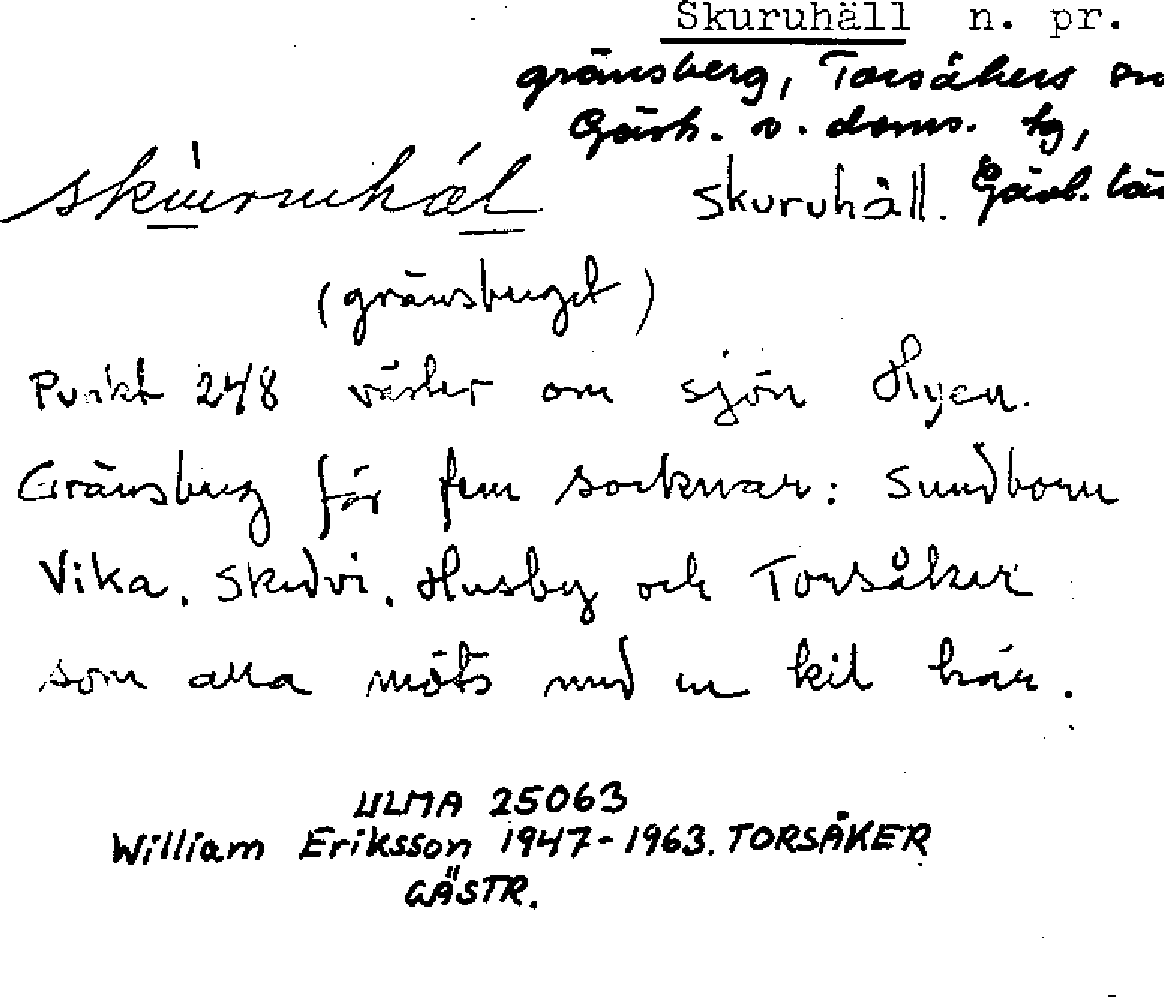 Skuruhäll n. pr.
gränsberg, Torsåkers sn
Gästr. v. doms. tg,
Gävl. län
skùruhæl skuruhäll.
(gränsberget)
Punkt 248 väster om sjön Hyen.
Gränsberg för fem socknar: Sundborn
Vika, Skedvi, Husby och Torsåker
som alla möts med en kil här.
ULMA 25063
William Eriksson 1947-1963. TORSÅKER
GÄSTR.